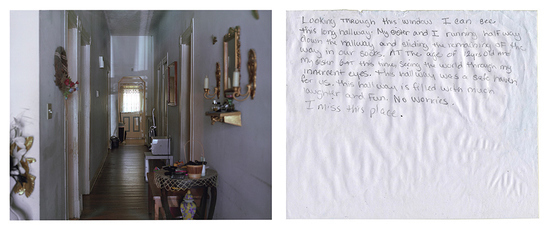 Looking Through this window I can see
this long hallway. My sister and I running halfway
down the hallway and sliding the remaining of the
way in our socks. AT the age of 12
My sister at this time seeing the world through my
innocent eyes. This hallway was a safe haven
for us. This hallway is filled with much
laughter and fun. No worries.
I miss this place.